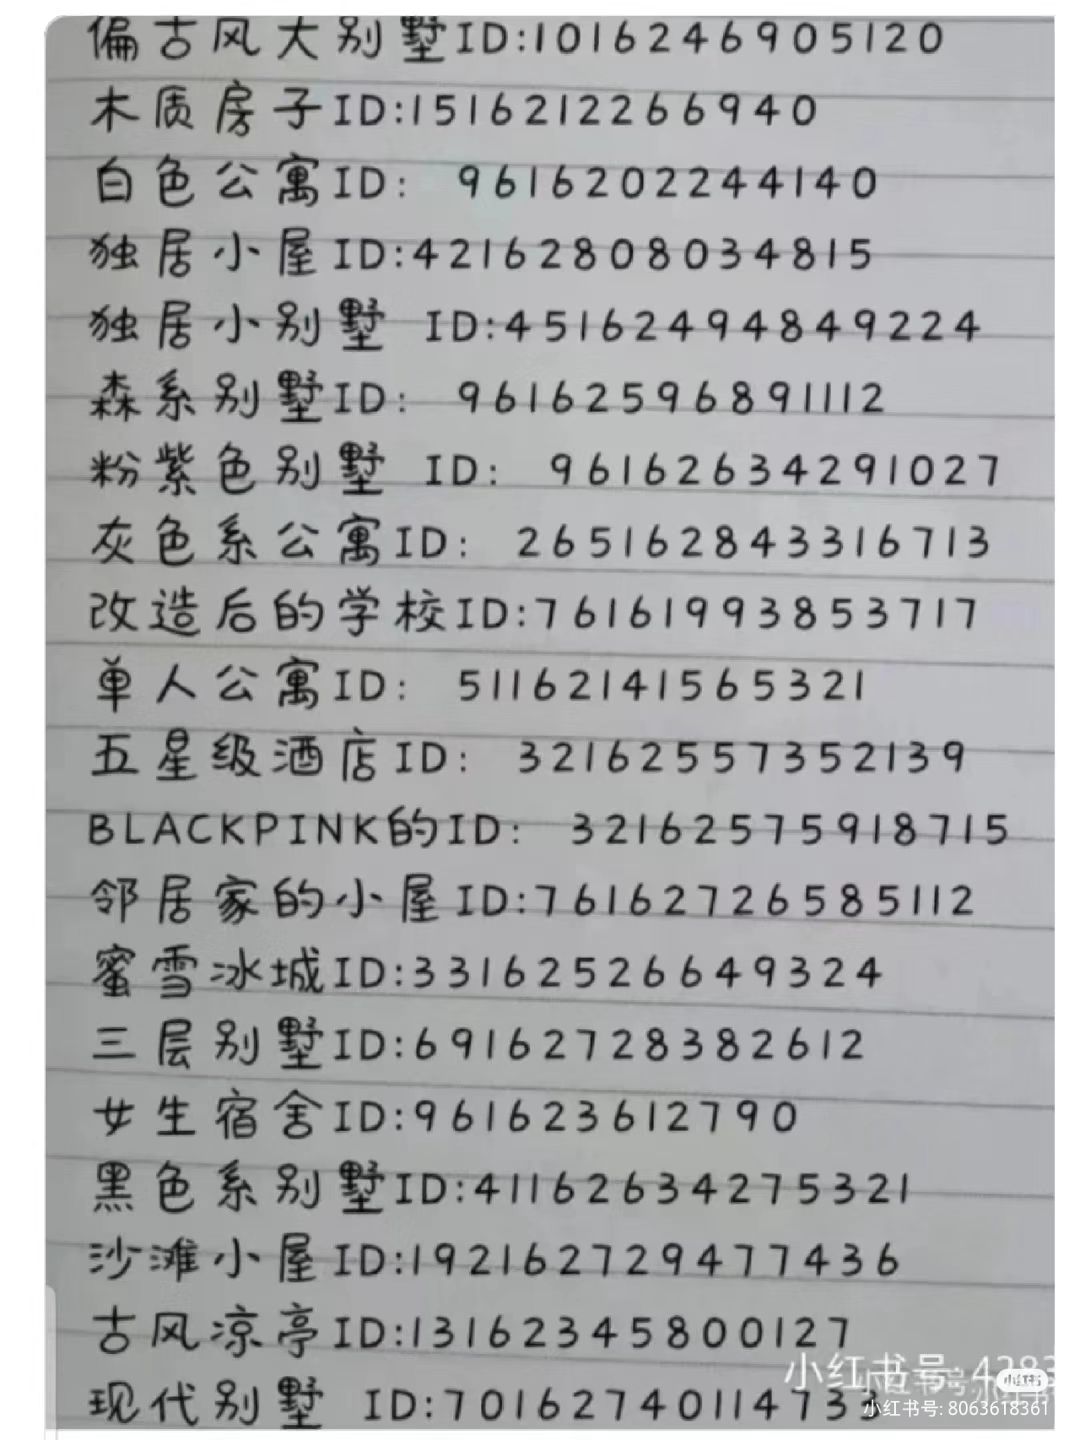 偏古风大别墅ID:1016246905120
木质房子ID:1516212266940
白色公寓ID: 9616202244140
独居小屋ID:42162808034815
独居小别墅 ID:45162494849224
森系别墅ID: 96162596891112
粉紫色别墅 ID: 96162634291027
灰色系公寓ID: 265162843316713
改造后的学校ID:76161993853717
单人公寓ID: 51162141565321
五星级酒店ID: 32162557352139
BLACKPINK的ID: 32162575918715
邻居家的小屋ID:76162726585112
蜜雪冰城ID:33162526649324
三层别墅ID:69162728382612
女生宿舍ID:961623612790
黑色系别墅ID:41162634275321
沙滩小屋ID:192162729477436
古风凉亭ID:13162345800127
小红书号: 4283
现代别墅 ID:70162740114733
小红书
小红书号: 8063618361